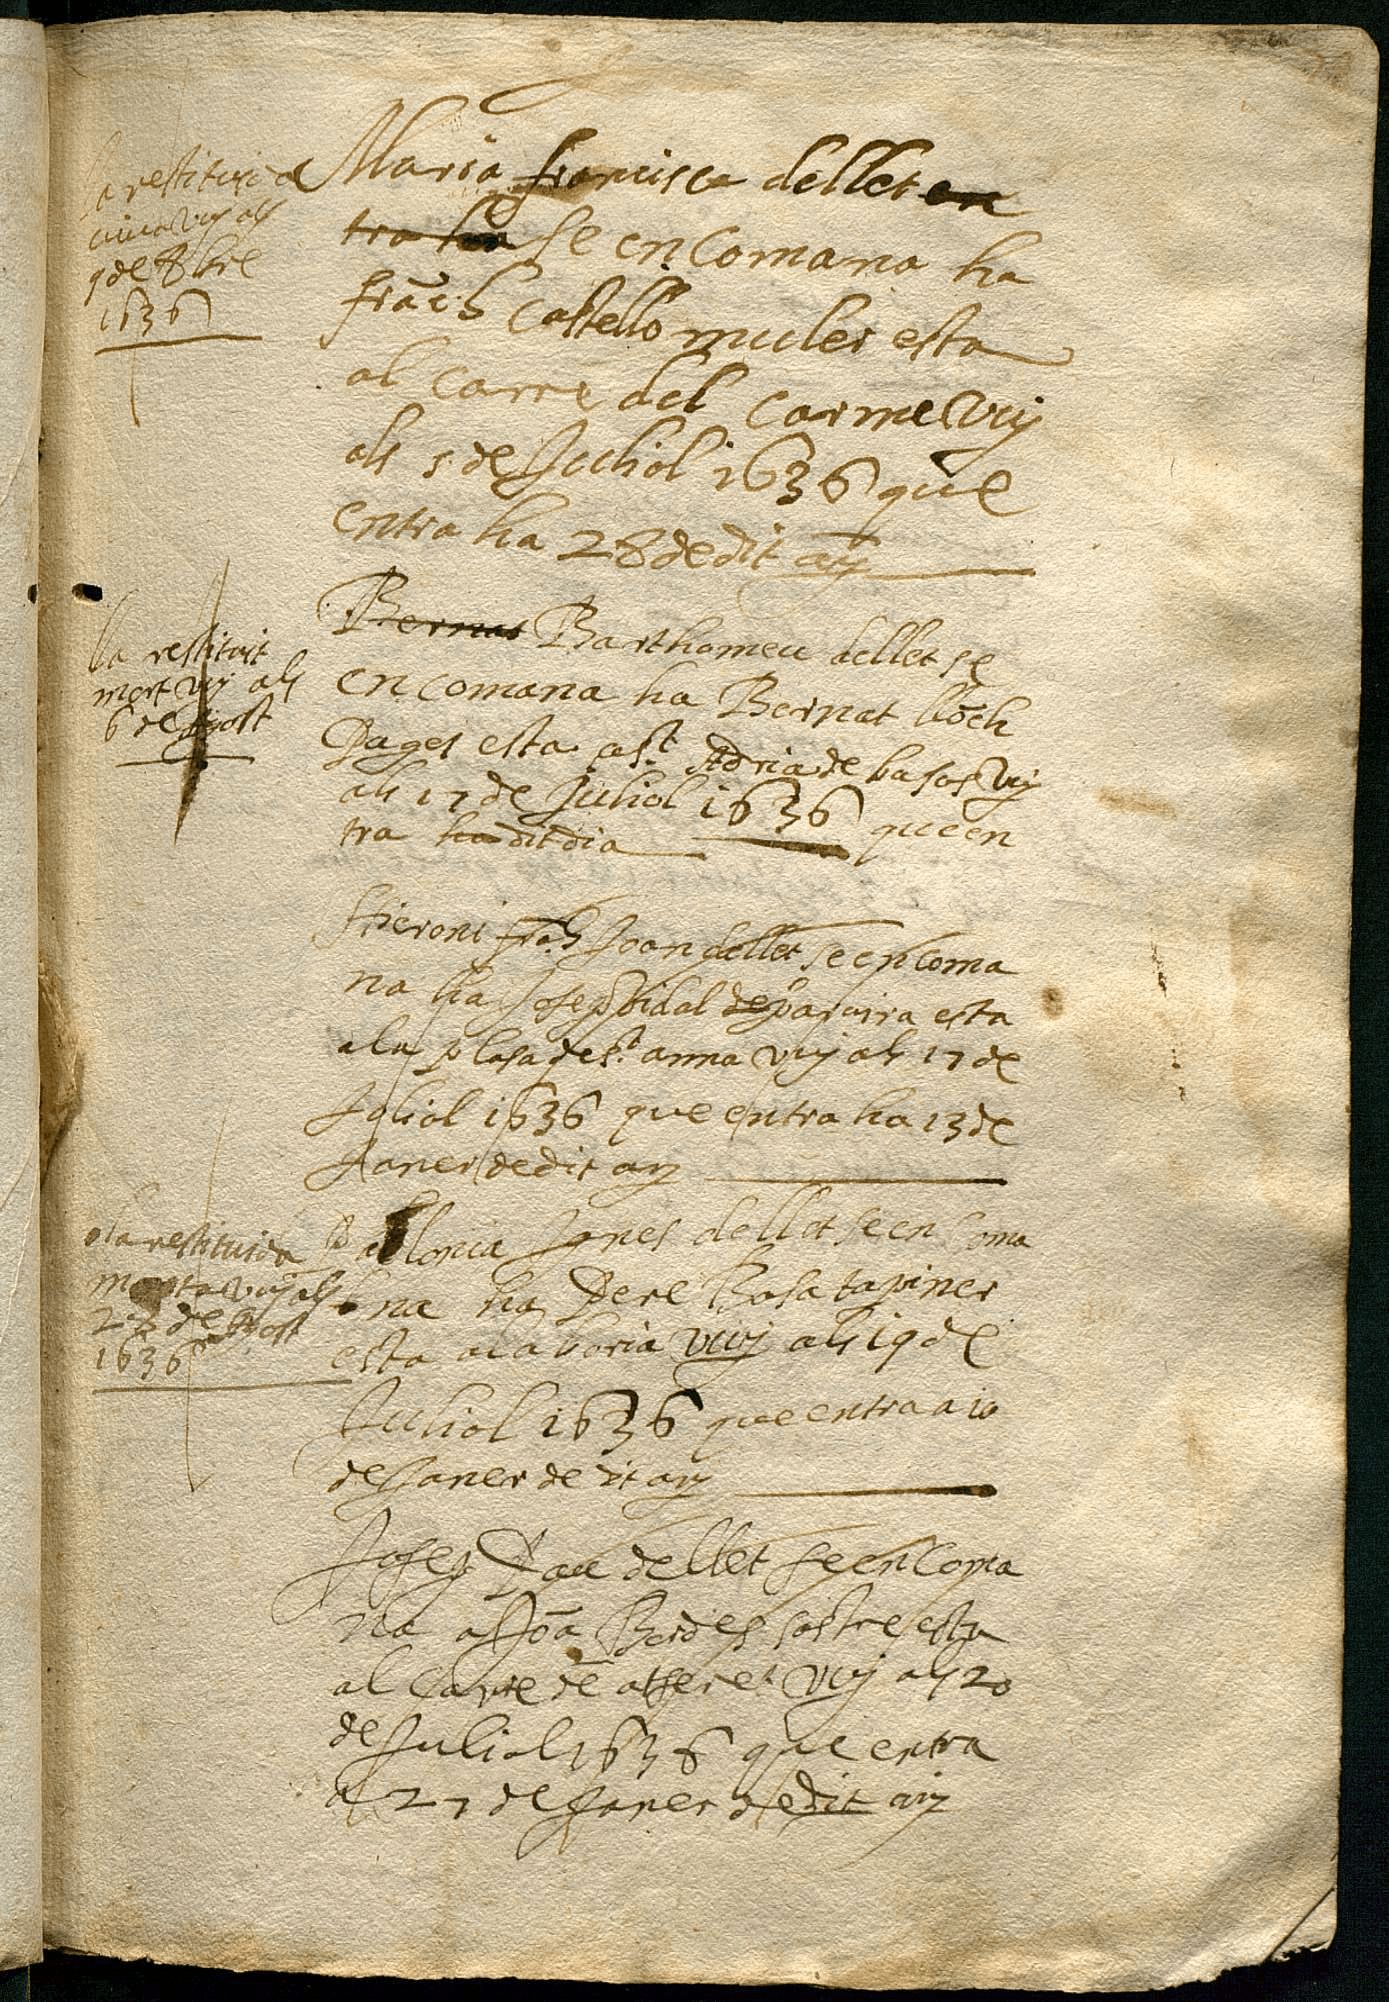 la restituida
viva vuy als
9 de 8bre
1636
Maria francisca de llet en
tra ha se encomana ha
franch Castello muler esta
al carre del carme vuy
als 5 de Juliol 1636 que
entra ha 28 de dit any
la restituit
mort vuy als
6 de Agost
Bernat Barthomeu de llet se
encomana ha Bernat lloch
Pages esta a st Adria de basos vuy
als 17 de Juliol 1636 que en
tra ha dit dia
Hieroni franch Joan de llet se encoma
na ha Josep Vidal de parayra esta
a la plasa de sta anna vuy als 17 de
Joliol 1636 que entra ha 13 de
Janer de dit any
la restituida
morta vuy als
28 de Agost
1636
Apollonia Ignes de llet se en coma
na ha Pere Bosa tapiner
esta a la boria vuy als 19 de
Juliol 1636 que entra a 10
de Janer de dit any
Josep Pau de llet se encoma
na a Joan sastre esta
al carre de vuy als 20
de Juliol 1636 que entra
a 27 de Janer de dit any